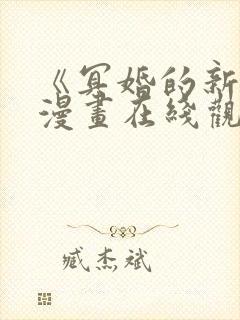 《冥婚的新
漫畫在綫觀
臧杰斌